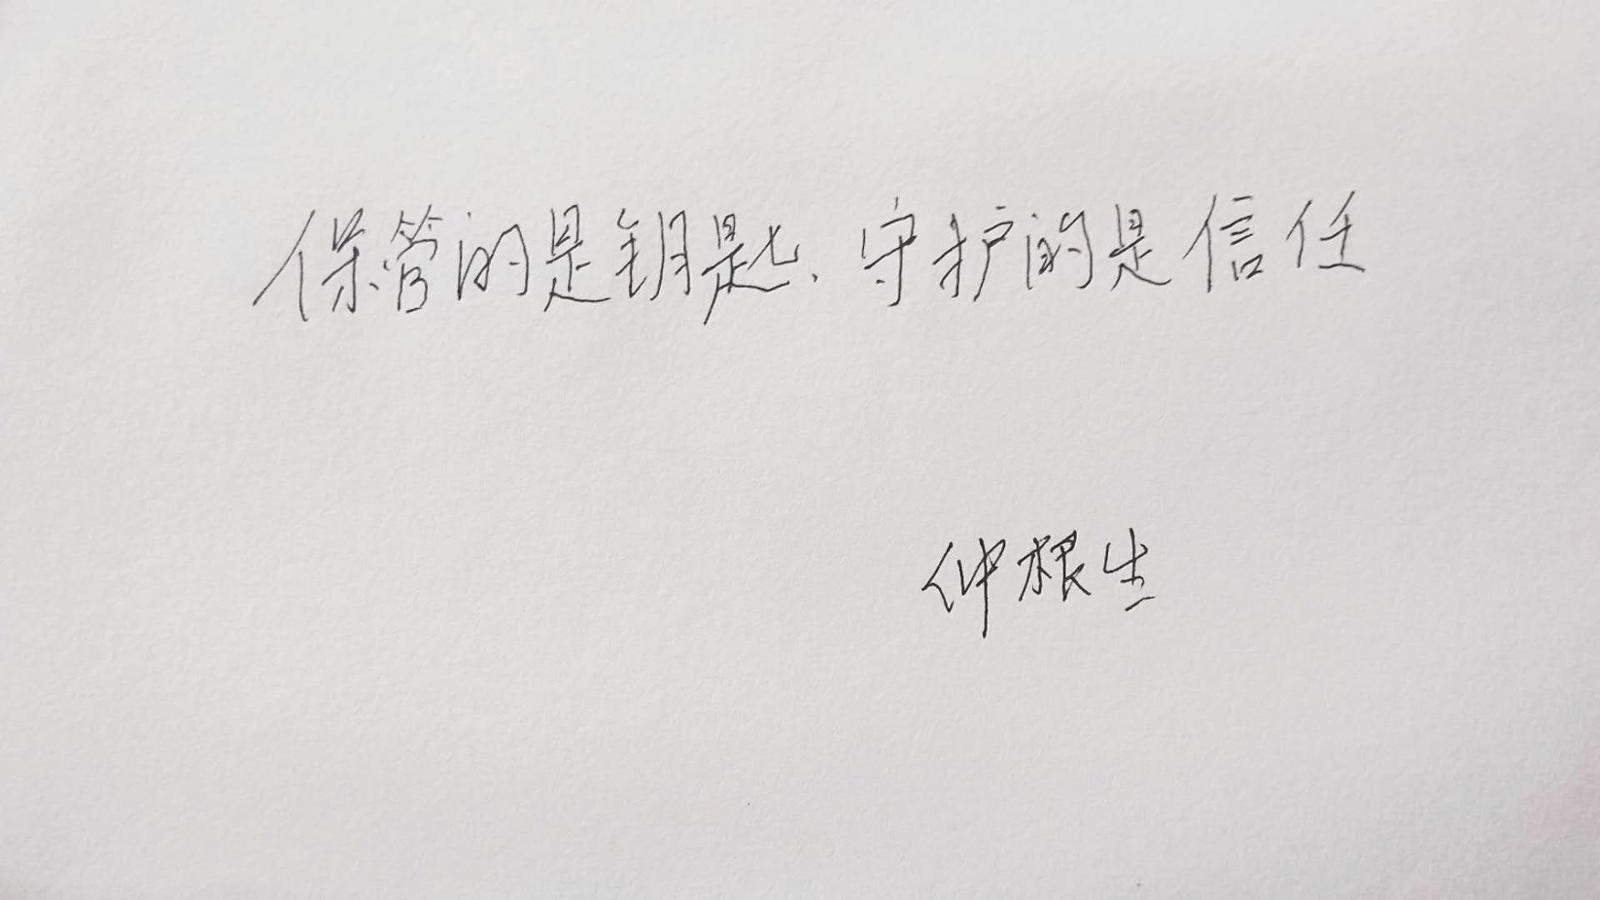 保管的是钥匙、守护的是信任
仲根生